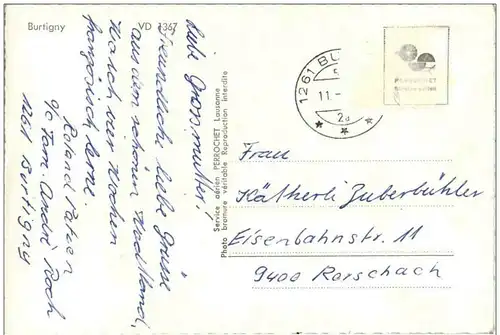 Burtigny VD 1367
Liebe Grossmutter!
Freundliche liebe Grüsse
aus dem schönen Waadtland,
Wo ich vier Wochen
französisch lerne.
Roland
c/o Fam. André Roch
1261 Burtigny
Service aérien PERROCHET Lausanne
Photo bromure véritable Reproduction interdite
1261 BU
11.-
2a
PERROCHET
Frau
Kätherli Zuberbühler
Eisenbahnstr. 11
9400 Rorschach